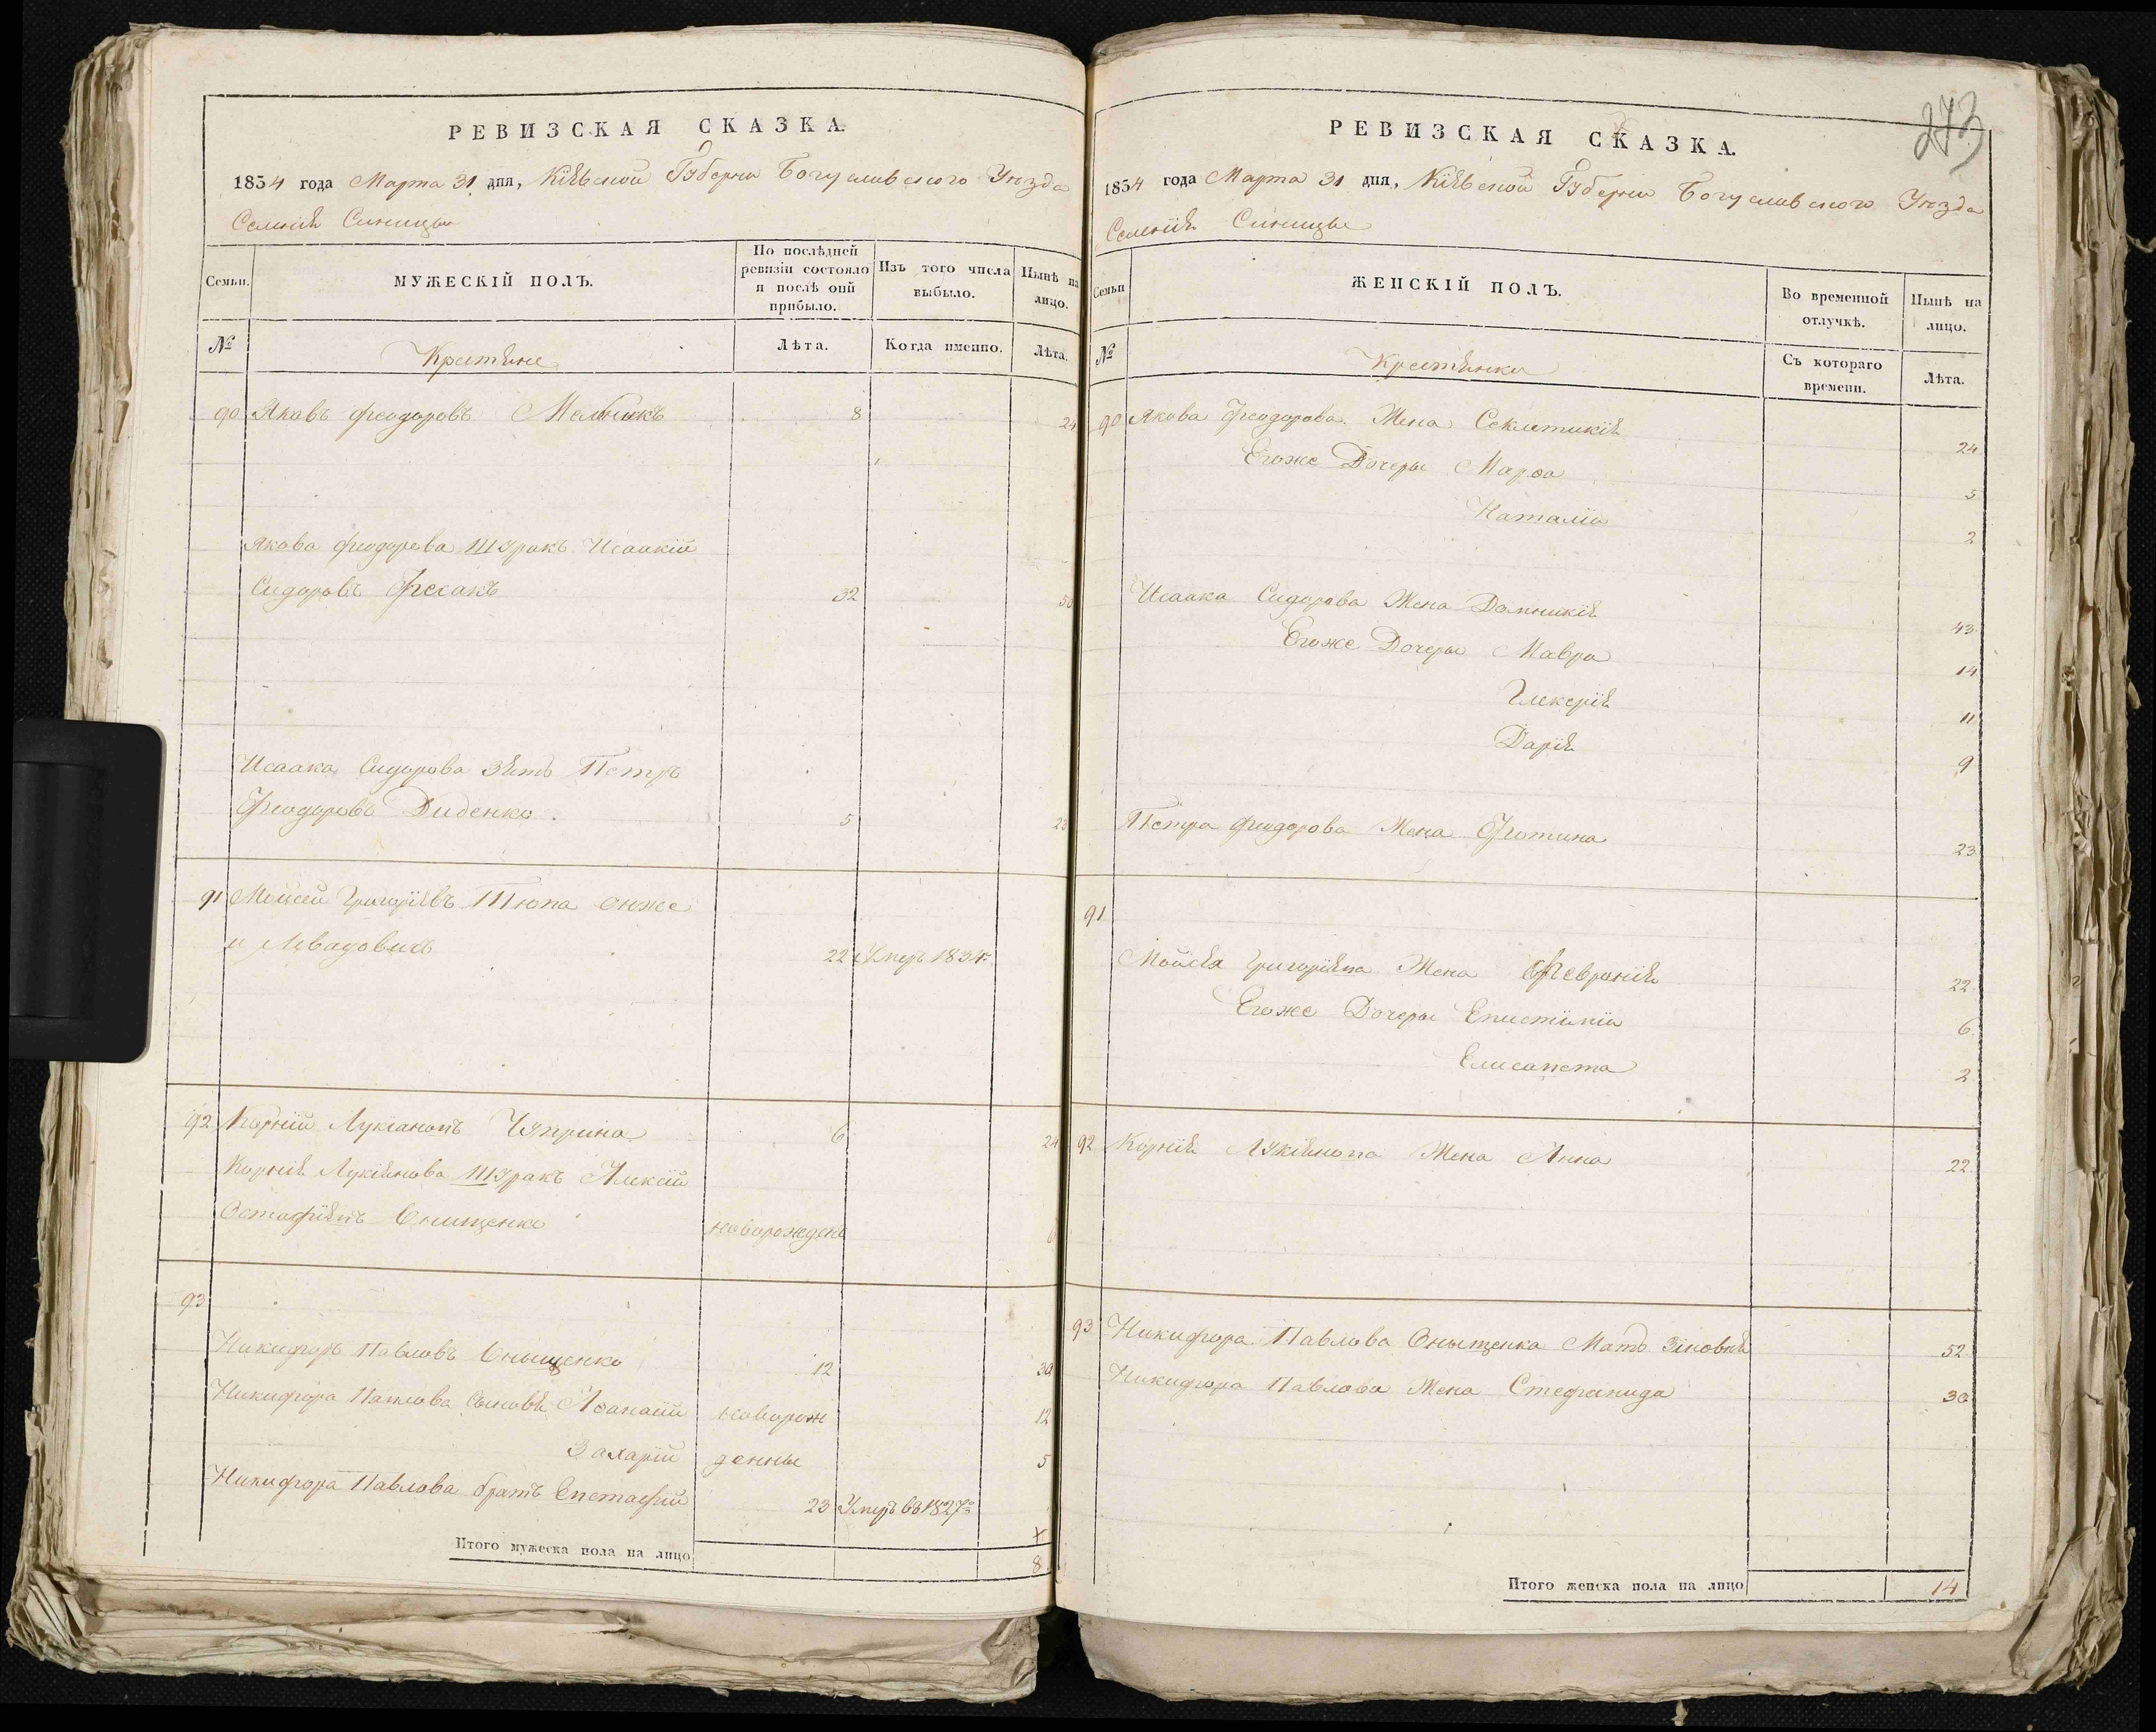 РЕВИЗСКАЯ СКАЗКА.
1834 года Марта 31 дня, Кіевской Губерніи Богуславского Уезда
Селенія Синицы
Семьи. МУЖЕСКІЙ ПОЛЪ. По послѣдней ревизіи состояло и послѣ оной прибыло. Изъ того числа выбыло. Нынѣ на лицо.
№ Крестяне Лѣта. Когда именно. Лѣта.
90 Яковъ Феодоровъ Мелникъ 8 24
Якова Феодорова Шуракъ Исаакій
Сидоровъ Фесакъ 32 50
Исаака Сидорова Зять Петръ
Феодоровъ Диденко. 5 23
91 Мойсей Григоріевъ Тюпа онже
и 22 Умеръ 1834
92 Корній Лукіановъ Чуприна 6 24
Корнія Лукіянова Шуракъ Алексій
Остафіевъ Онищенко новорожденъ
93
Никифоръ Павловъ Оныщенко 12 30
Никифора Павлова Сыновя Афанасій новорож 12
Захарій денны 5
Никифора Павлова братъ Евстафій 23 Умеръ въ 1827
Итого мужеска пола на лицо 8
273
РЕВИЗСКАЯ СКАЗКА.
1834 года Марта 31 дня, Кіевской Губерніи Богуславского Уезда
Селенія Синицы
Семьи ЖЕНСКІЙ ПОЛЪ. Во временной отлучкѣ. Нынѣ на лицо.
№ Крестянки Съ котораго времени. Лѣта.
90 Якова Феодорова Жена Секлетикія 24
Егоже Дочеры Марѳа 5
Наталія 2
Исаака Сидорова Жена Домникія 43
Егоже Дочеры Мавра 14
Глекерія 11
Дарія 9
Петра Феодорова Жена Фотина 23
91
Мойсея Григоріева Жена Февронія 22
Егоже Дочеры Епистимія 6
Елисавета 2
92 Корнія Лукіянова Жена Анна 22
93 Никифора Павлова Оныщенка Мать Зіновія 52
Никифора Павлова Жена Стефанида 30
Итого женска пола на лицо 14